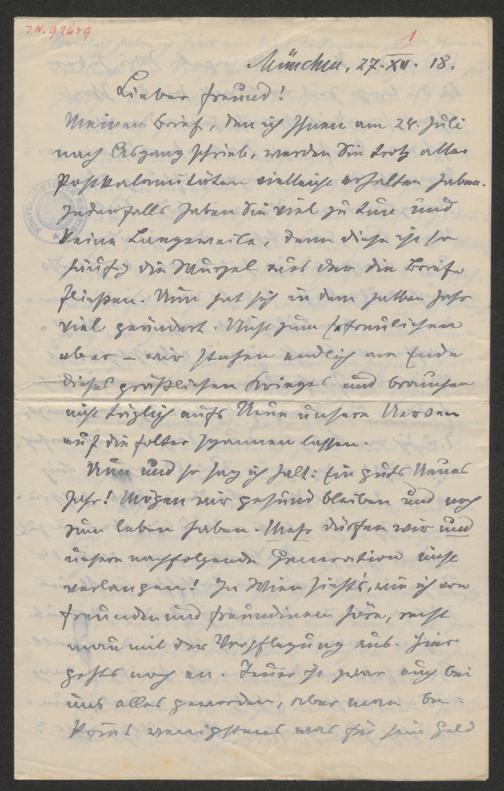 I.N. 92649
1
München, 27. XII. 18.
Lieber Freund!
Meinen Brief, den ich Ihnen am 24. Juli
nach schrieb, werden Sie trotz aller
Postkalamitäten vielleicht erhalten haben.
Jedenfalls haben Sie viel zu tun und
keine Langeweile, denn diese ist so
häufig die Wurzel aus der die Briefe
fließen. Nun hat sich in dem halben Jahr
viel geändert. Nicht zum Erfreulichen
aber – wir stehen endlich am Ende
dieses gräßlichen Krieges und brauchen
nicht täglich aufs Neue unsere Nerven
auf die Folter spannen lassen.
Nun und so sag ich halt: Ein guts Neues
Jahr! Mögen wir gesund bleiben und noch
zum leben haben. Mehr dürfen wir und
unsere nachfolgende Generation nicht
verlangen! In Wien sieht's, wie ich von
Freunden und Freundinen höre, recht
mau mit der Verpflegung aus. Hier
gehts noch an. Teuer ist zwar auch bei
uns alles geworden, aber man be-
komt wenigstens was für sein Geld